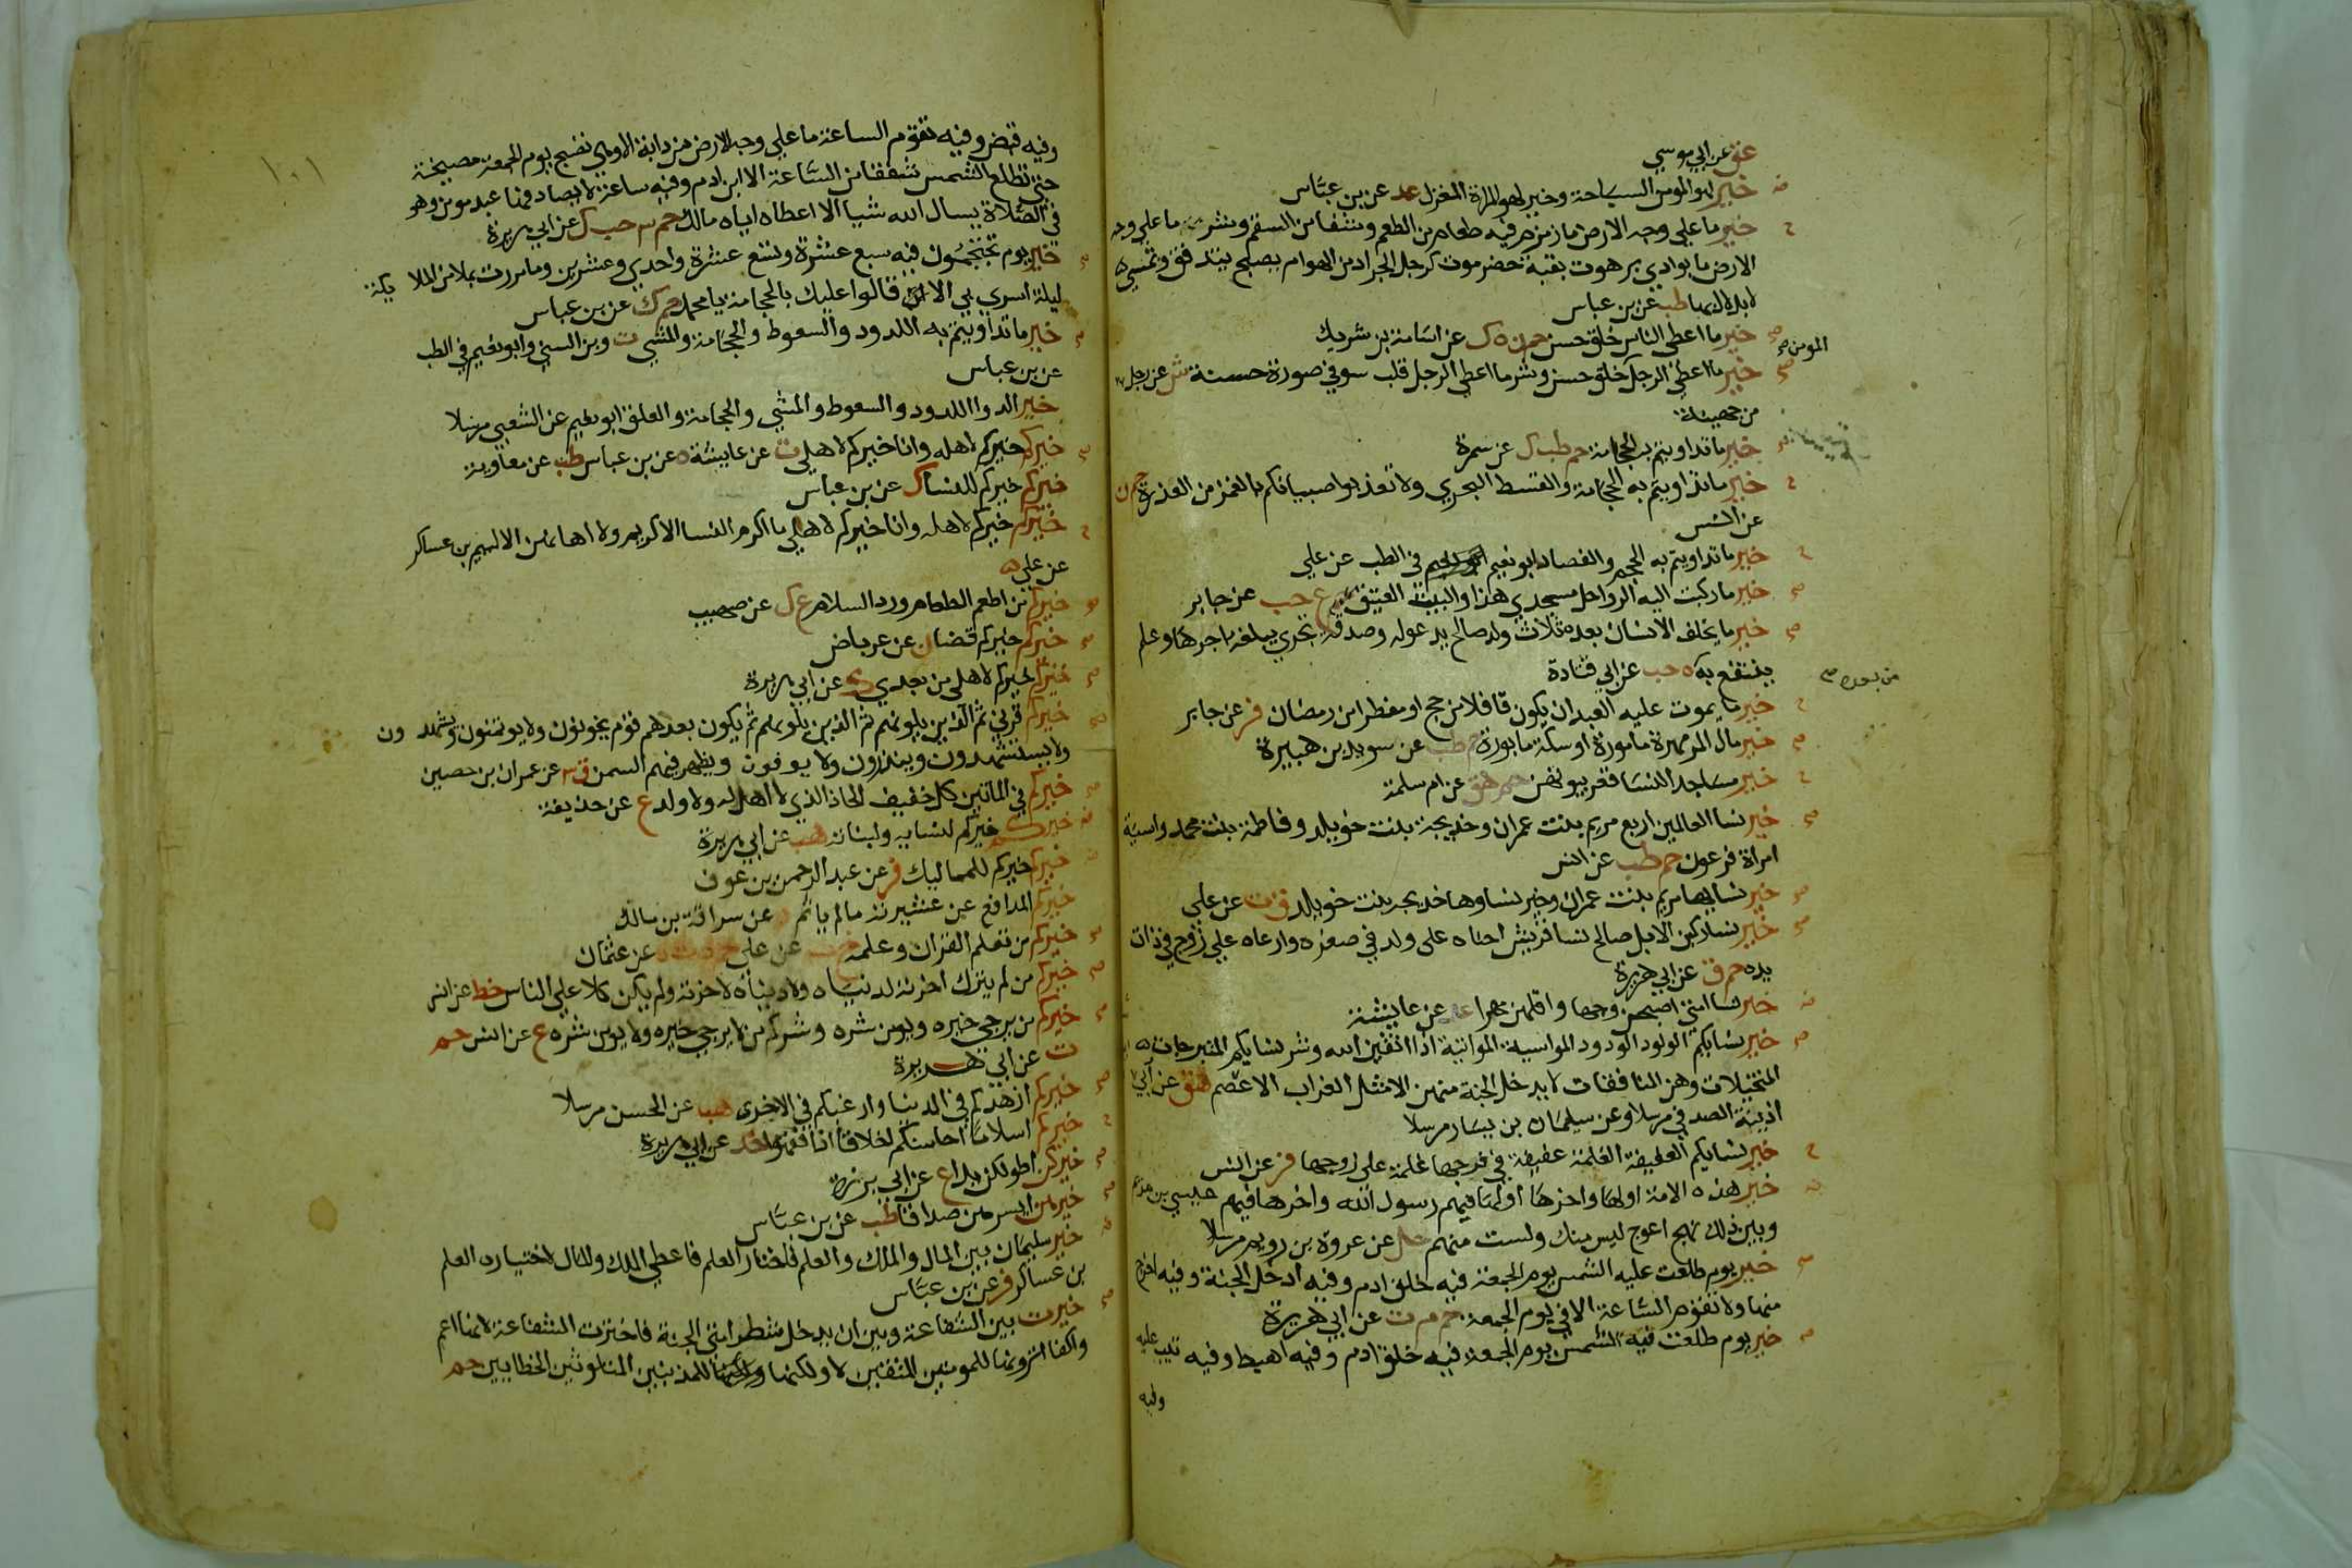 عق عن ابي موسي
خير لهو المومن السباحة وخير لهو المراة المغزل عد عن بن عباس
خير ما علي وجه الارض ما زمزم فيه طعام من الطعم وشفا من السقم وشر ما علي وجه
الارض ما بوادي برهوت بقبة حضرموت كرجل الجراد من الهوام يصبح يتدفق وتمسي
لا بلال بها طب عن بن عباس
خير ما اعطي الناس خلق حسن حم ن ه ك عن اسامة بن شريك
المومن صح
خير ما اعطي الرجل خلق حسن وشر ما اعطي الرجل قلب سو في صورة حسنة ش عن رجل
من جهينة
خير ما تداويتم به الحجامة حم طب ك عن سمرة
خير ما تداويتم به الحجامة والقسط البحري ولا تعذبوا صبيانكم بالغمز من العذرة حم ن
عن انس
خير ما تداويتم به الحجم والفصاد ابو نعيم في الطب عن علي
خير ما ركبت اليه الرواحل مسجدي هذا والبيت العتيق ع حب عن جابر
خير ما يخلف الانسان بعده ثلاث ولد صالح يدعو له وصدقة تجري يبلغه اجرها وعلم
ينتفع به ه حب عن ابي قتادة
من بعده صح
خير ما يموت عليه العبد ان يكون قافلا من حج او مفطرا من رمضان فر عن جابر
خير مال المر مهرة مامورة او سكة مابورة حم طب عن سويد بن هبيرة
خير مساجد النسا قعر بيوتهن حم هق عن ام سلمة
خير نسا العالمين اربع مريم بنت عمران وخديجة بنت خويلد وفاطمة بنت محمد واسية
امراة فرعون حم طب عن انس
خير نسايها مريم بنت عمران وخير نساوها خديجه بنت خويلد ق ت عن علي
خير نسا ركبن الابل صالح نسا قريش احناه على ولد في صغره وارعاه علي زوج في ذات
يده حم ق عن ابي هريرة
خير نسا امتي اصبحهن وجها واقلهن مهرا عد عن عايشة
خير نسايكم الولود الودود المواسية المواتية اذا اتقين الله وشر نسايكم المتبرجات
المتخيلات وهن المنافقات لا يدخل الجنة منهن الا مثل الغراب الاعصم هق عن ابي
اذينة الصدفي مرسلا وعن سليمان بن يسار مرسلا
خير نسايكم العفيفة الغلمة عفيفة في فرجها غلمة علي زوجها فر عن انس
خير هذه الامة اولها واخرها اولها فيهم رسول الله واخرها فيهم عيسي بن مريم
وبين ذلك نهج اعوج ليس منك ولست منهم حل عن عروة بن رويم مرسلا
خير يوم طلعت عليه الشمس يوم الجمعة فيه خلق ادم وفيه ادخل الجنة وفيه اخرج
منها ولا تقوم الساعة الا في يوم الجمعة حم م ت عن ابي هريرة
خير يوم طلعت فيه الشمس يوم الجمعة فيه خلق ادم وفيه اهبط وفيه تيب عليه
وفيه
١٠١
وفيه قبض وفيه تقوم الساعة ما علي وجه الارض من دابة الا وهي تصبح يوم الجمعة مصيخة
حتي تطلع الشمس شفقا من الساعة الا ابن ادم وفيه ساعة لا يصادفها عبد مومن وهو
في الصلاة يسال الله شيا الا اعطاه اياه مالك حم ٣ حب ك عن ابي هريرة
خير يوم تحتجمون فيه سبع عشرة وتسع عشرة واحدي وعشرين وما مررت بملا من الملايكة
ليلة اسري بي الا قالوا عليك بالحجامة يا محمد حم ك عن بن عباس
خير ما تداويتم به اللدود والسعوط والحجامة والمشي ت وبن السني وابو نعيم في الطب
عن بن عباس
خير الدوا اللدود والسعوط والمشي والحجامة والعلق ابو نعيم عن الشعبي مرسلا
خيركم خيركم لاهله وانا خيركم لاهلي ت عن عايشة ه عن بن عباس طب عن معاوية
خيركم خيركم للنسا ك عن بن عباس
خيركم خيركم لاهله وانا خيركم لاهلي ما اكرم النسا الا كريم ولا اهانهن الا لئيم بن عساكر
عن علي
خيركم من اطعم الطعام ورد السلام ع ك عن صهيب
خيركم خيركم قضا ن عن عرباض
خيركم خيركم لاهلي من بعدي ك عن ابي هريرة
خيركم قرني ثم الذين يلونهم ثم الذين يلونهم ثم يكون بعدهم قوم يخونون ولا يوتمنون ويشهدون
ولا يستشهدون وينذرون ولا يوفون ويظهر فيهم السمن ق ٣ عن عمران بن حصين
خيركم في الماتين كل خفيف الحاذ الذي لا اهل له ولا ولد ع عن حذيفة
خيركم خيركم لنسايه ولبناته هب عن ابي هريرة
خيركم خيركم للمماليك فر عن عبد الرحمن بن عوف
خيركم المدافع عن عشيرته ما لم ياثم د عن سراقة بن مالك
خيركم من تعلم القران وعلمه خ ت عن علي حم د ت ه عن عثمان
خيركم من لم يترك اخرته لدنياه ولا دنياه لاخرته ولم يكن كلا علي الناس خط عن انس
خيركم من يرجي خيره ويومن شره وشركم من لا يرجي خيره ولا يومن شره ع عن انس حم
ت عن ابي هريرة
خيركم ازهدكم في الدنيا وارغبكم في الاخرة هب عن الحسن مرسلا
خيركم اسلاما احاسنكم اخلاقا اذا فقهوا خد عن ابي هريرة
خيركن اطولكن يدا ع عن ابي برزة
خيرهن ايسرهن صداقا طب عن بن عباس
خير سليمان بين المال والملك والعلم فاختار العلم فاعطي الملك والمال لاختياره العلم
بن عساكر فر عن بن عباس
خيرت بين الشفاعة وبين ان يدخل شطر امتي الجنة فاخترت الشفاعة لانها اعم
واكفا اترونها للمومنين المتقين لا ولكنها للمذنبين المتلوثين الخطايين حم